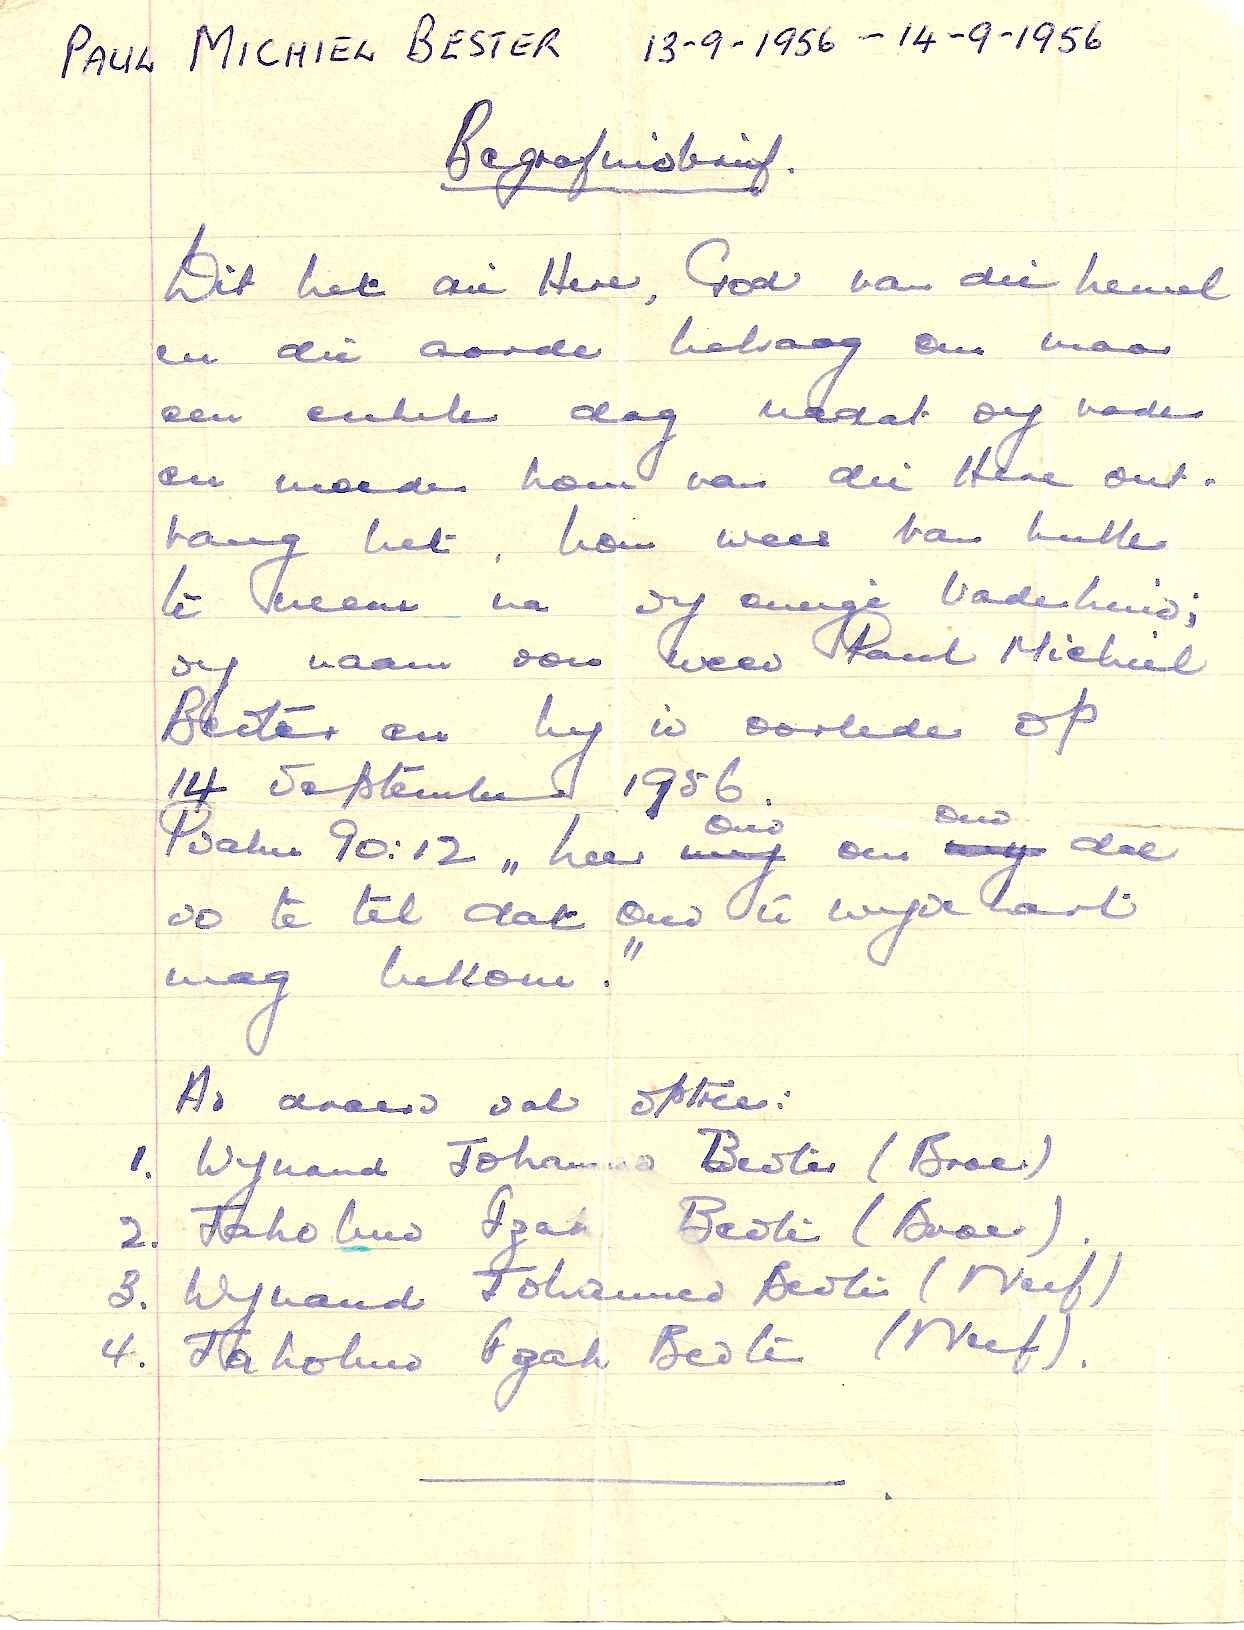 PAUL MICHIEL BESTER 13-9-1956 - 14-9-1956
Begrafnisbrief.
Dit het die Here, God van die hemel
en die aarde behaag om maar
een enkele dag nadat sy vader
en moeder hom van die Here ont-
vang het, hom weer van hulle
te neem na sy ewige Vaderhuis;
sy naam sou wees Paul Michiel
Bester en hy is oorlede op
14 September 1956.
ons ons
Psalm 90:12 „ leer my om my dae
so te tel dat ons 'n wyse hart
mag bekom."
As draers sal optree:
1. Wynand Johannes Bester (Broer)
2. Jakobus Izak Bester (Broer).
3. Wynand Johannes Bester (Neef)
4. Jakobus Izak Bester (Neef).